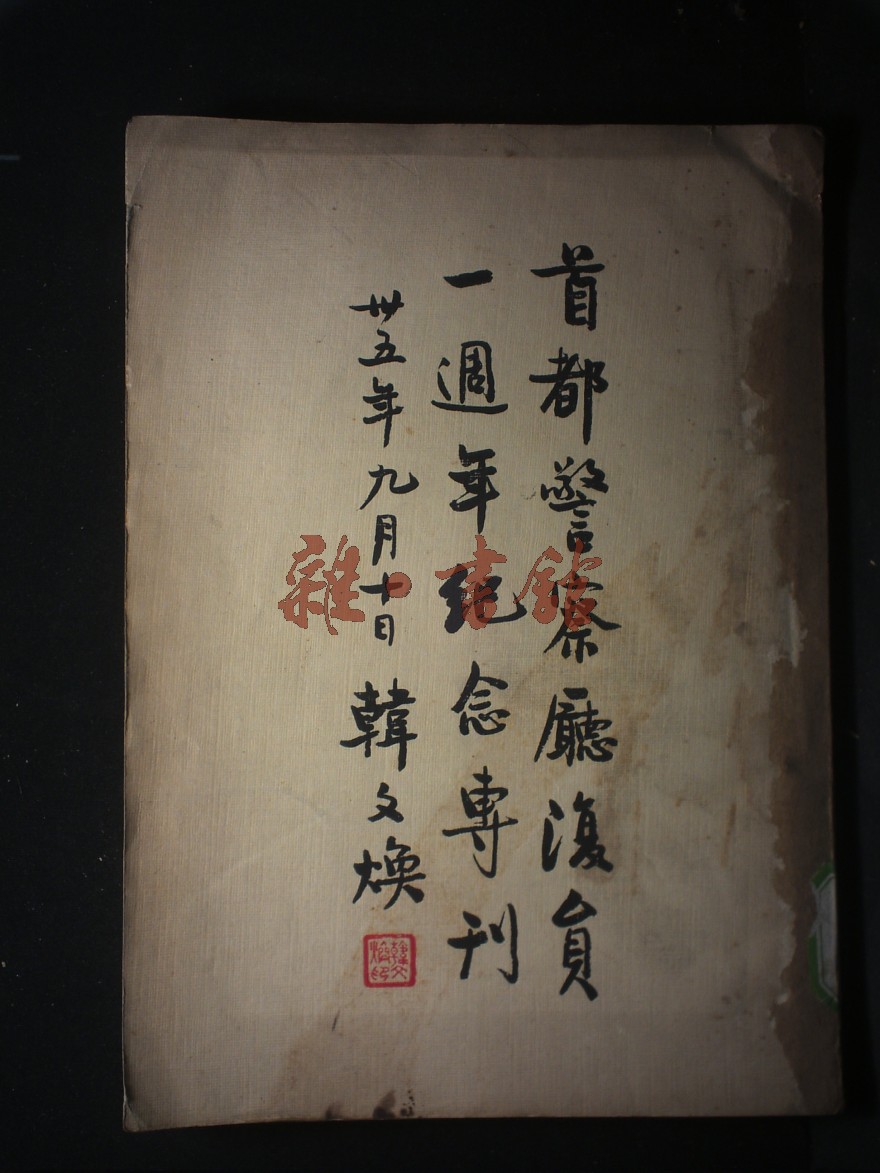 首都警察廳復員
一週年紀念專刊
卅五年九月十日 韓文煥
韓文煥印
雜·書館